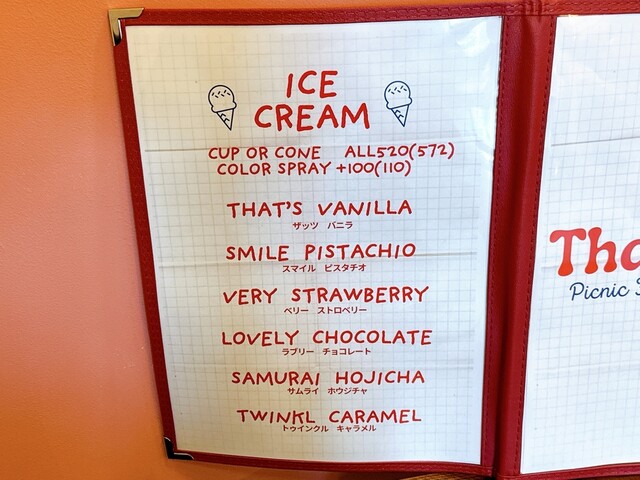 ICE
CREAM
CUP OR CONE ALL520(572)
COLOR SPRAY +100(110)
THAT'S VANILLA
ザッツ バニラ
SMILE PISTACHIO
スマイル ピスタチオ
VERY STRAWBERRY
ベリー ストロベリー
LOVELY CHOCOLATE
ラブリー チョコレート
SAMURAI HOJICHA
サムライ ホウジチャ
TWINKL CARAMEL
トゥインクル キャラメル
Tha
Picnic